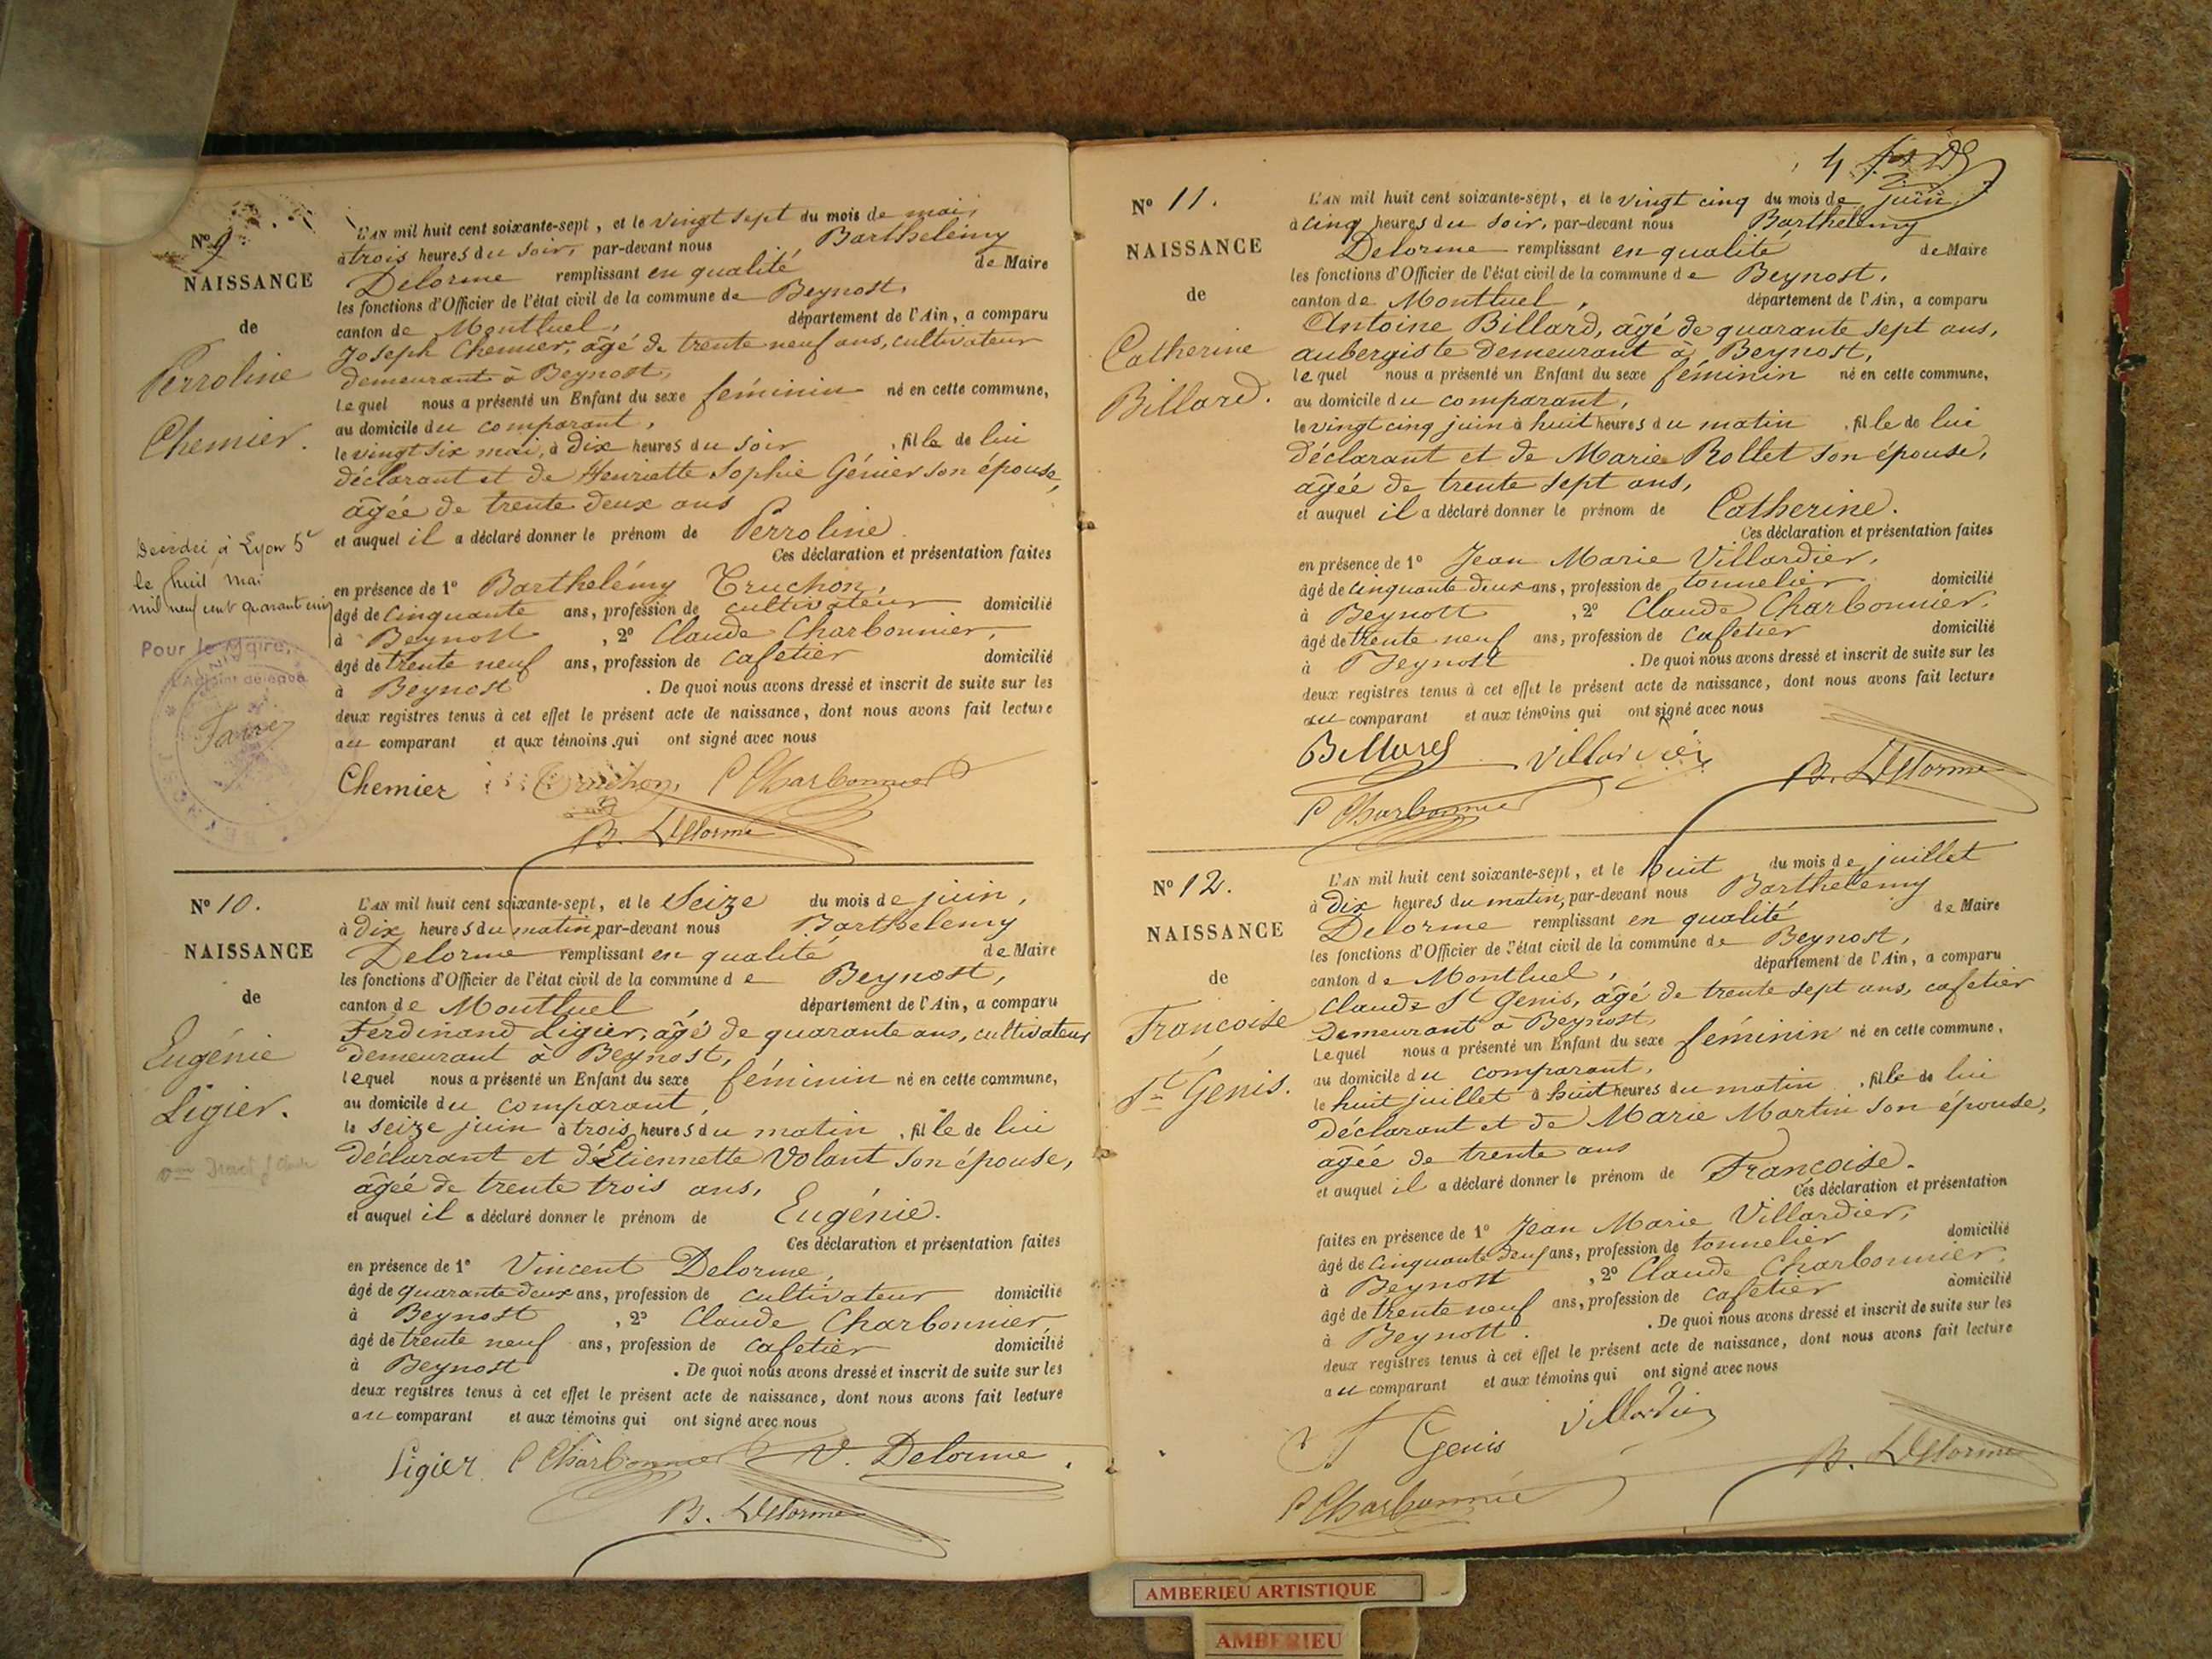 Nº 9
NAISSANCE
de
Perroline
Chemier.
Décédée à Lyon 5e
le huit mai
mil neuf cent quarante cinq
Pour le Maire,
L'Adjoint délégué
L'AN mil huit cent soixante-sept, et le vingt sept du mois de mai,
à trois heures du soir, par-devant nous Barthelémy
Delorme remplissant en qualité de Maire
les fonctions d'Officier de l'état civil de la commune de Beynost,
canton de Montluel, département de l'Ain, a comparu
Joseph Chemier, âgé de trente neuf ans, cultivateur
demeurant à Beynost,
lequel nous a présenté un Enfant du sexe féminin né en cette commune,
au domicile du comparant,
le vingt six mai, à dix heures du soir, fille de lui
déclarant et de Henriette Sophie Génier son épouse,
âgée de trente deux ans
et auquel il a déclaré donner le prénom de Perroline
Ces déclaration et présentation faites
en présence de 1º Barthelémy Truchon,
âgé de cinquante ans, profession de cultivateur domicilié
à Beynost, 2º Claude Charbonnier,
âgé de trente neuf ans, profession de cafetier domicilié
à Beynost. De quoi nous avons dressé et inscrit de suite sur les
deux registres tenus à cet effet le présent acte de naissance, dont nous avons fait lecture
au comparant et aux témoins qui ont signé avec nous
Chemier Truchon C Charbonnier
B. Delorme
Nº 10.
NAISSANCE
de
Eugénie
Ligier.
L'AN mil huit cent soixante-sept, et le Seize du mois de juin,
à dix heures du matin, par-devant nous Barthelemy
Delorme remplissant en qualité de Maire
les fonctions d'Officier de l'état civil de la commune de Beynost,
canton de Montluel, département de l'Ain, a comparu
Ferdinand Ligier, âgé de quarante ans, cultivateur
demeurant à Beynost,
lequel nous a présenté un Enfant du sexe féminin né en cette commune,
au domicile du comparant,
le seize juin à trois heures du matin, fille de lui
déclarant et d'Etiennette Volant son épouse,
âgée de trente trois ans,
et auquel il a déclaré donner le prénom de Eugénie.
Ces déclaration et présentation faites
en présence de 1º Vincent Delorme,
âgé de quarante deux ans, profession de cultivateur domicilié
à Beynost, 2º Claude Charbonnier
âgé de trente neuf ans, profession de cafetier domicilié
à Beynost. De quoi nous avons dressé et inscrit de suite sur les
deux registres tenus à cet effet le présent acte de naissance, dont nous avons fait lecture
au comparant et aux témoins qui ont signé avec nous
Ligier C Charbonnier V. Delorme
B. Delorme
4
Nº 11.
NAISSANCE
de
Catherine
Billard.
L'AN mil huit cent soixante-sept, et le vingt cinq du mois de juin
à cinq heures du soir, par-devant nous Barthelemy
Delorme remplissant en qualité de Maire
les fonctions d'Officier de l'état civil de la commune de Beynost,
canton de Montluel, département de l'Ain, a comparu
Antoine Billard, âgé de quarante sept ans,
aubergiste demeurant à Beynost,
lequel nous a présenté un Enfant du sexe féminin né en cette commune,
au domicile du comparant,
le vingt cinq juin à huit heures du matin, fille de lui
déclarant et de Marie Rollet son épouse,
âgée de trente sept ans,
et auquel il a déclaré donner le prénom de Catherine.
Ces déclaration et présentation faites
en présence de 1º Jean Marie Villardier,
âgé de cinquante deux ans, profession de tonnelier domicilié
à Beynost, 2º Claude Charbonnier,
âgé de trente neuf ans, profession de cafetier domicilié
à Beynost. De quoi nous avons dressé et inscrit de suite sur les
deux registres tenus à cet effet le présent acte de naissance, dont nous avons fait lecture
au comparant et aux témoins qui ont signé avec nous
Billard Villardier B. Delorme
C Charbonnier
Nº 12.
NAISSANCE
de
Francoise
St Genis.
L'AN mil huit cent soixante-sept, et le huit du mois de juillet
à dix heures du matin, par-devant nous Barthelemy
Delorme remplissant en qualité de Maire
les fonctions d'Officier de l'état civil de la commune de Beynost,
canton de Montluel, département de l'Ain, a comparu
Claude St Genis, âgé de trente sept ans, cafetier
demeurant à Beynost,
lequel nous a présenté un Enfant du sexe féminin né en cette commune,
au domicile du comparant,
le huit juillet à huit heures du matin, fille de lui
déclarant et de Marie Martin son épouse,
âgée de trente ans
et auquel il a déclaré donner le prénom de Françoise.
Ces déclaration et présentation
faites en présence de 1º Jean Marie Villardier,
âgé de cinquante deux ans, profession de tonnelier domicilié
à Beynost, 2º Claude Charbonnier,
âgé de trente neuf ans, profession de cafetier domicilié
à Beynost. De quoi nous avons dressé et inscrit de suite sur les
deux registres tenus à cet effet le présent acte de naissance, dont nous avons fait lecture
au comparant et aux témoins qui ont signé avec nous
St Genis Villardier
C Charbonnier B. Delorme
AMBERIEU ARTISTIQUE
AMBERIEU